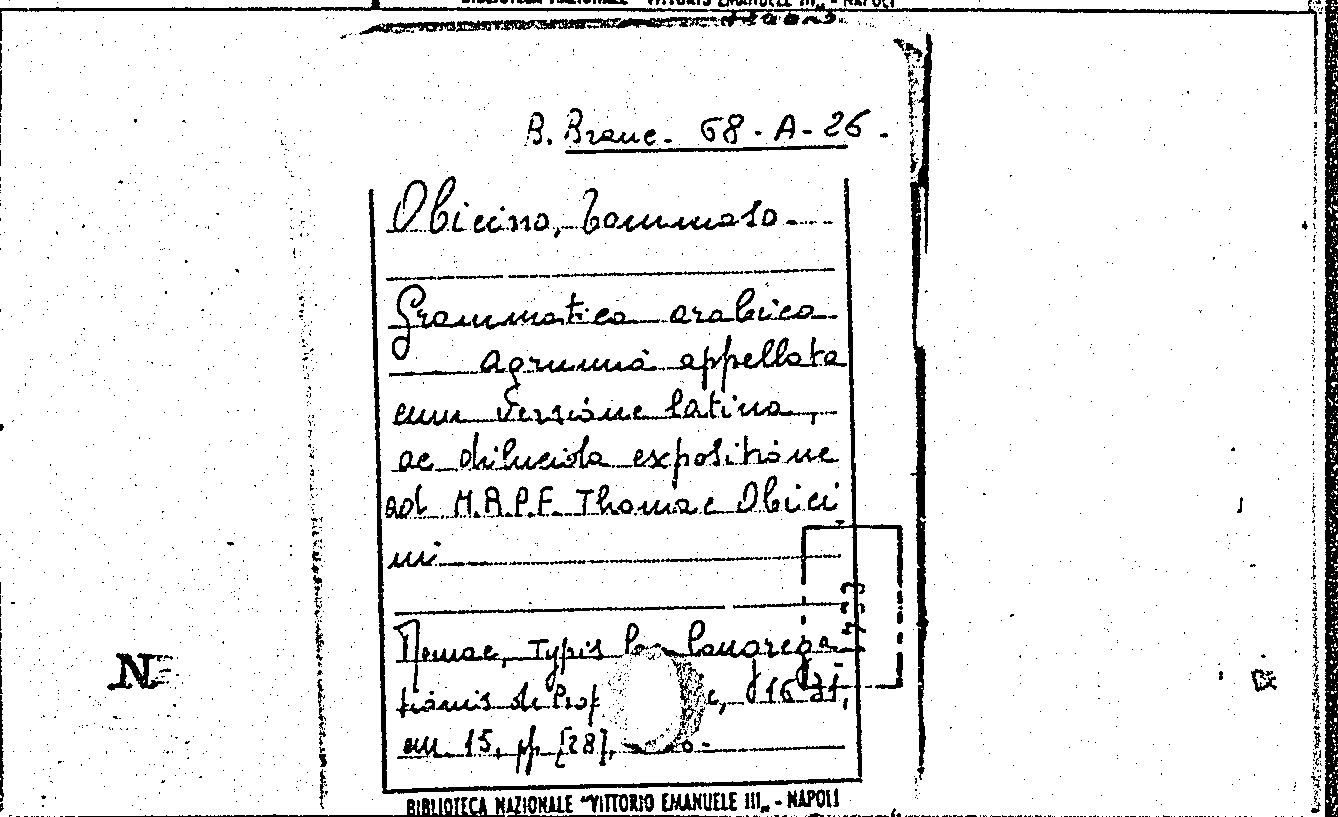 BIBLIOTECA NAZIONALE "VITTORIO EMANUELE III„ - NAPOLI
B. Branc. 68-A-26.
Obicino, Tommaso
Grammatica arabica
agrumia appellata
cum versione latina,
ac dilucida expositione
ad M.R.P.F. Thomae Obici
ni
Romae, Typis Congrega
tionis de Prof
cm. 15, pp. [28],
N
BIBLIOTECA NAZIONALE "VITTORIO EMANUELE III„ - NAPOLI